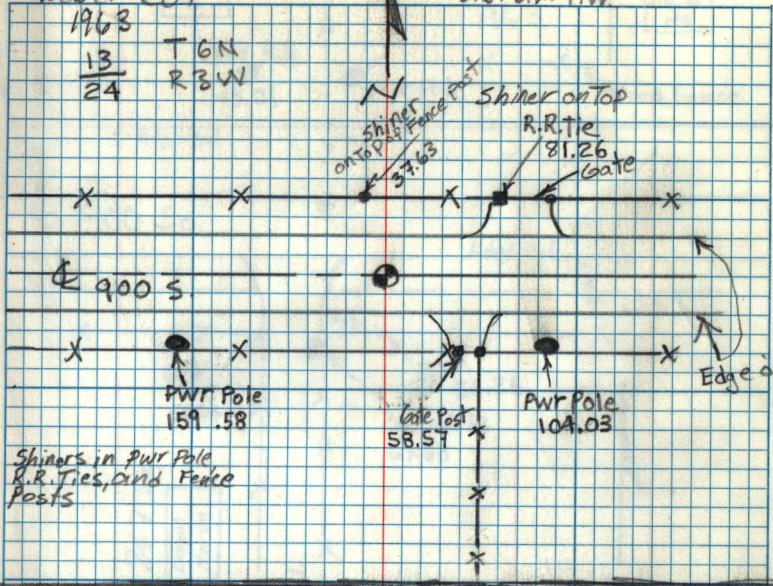 1963
13 T 6N
24 R 3W
Shiner
on Top of Fence Post
37.63
Shiner on Top
R.R. Tie
81.26
Gate
℄ 900 S.
Edge
Pwr Pole
159.58
Gate Post
58.57
Pwr Pole
104.03
Shiners in Pwr Pole,
R.R. Ties, and Fence
Posts